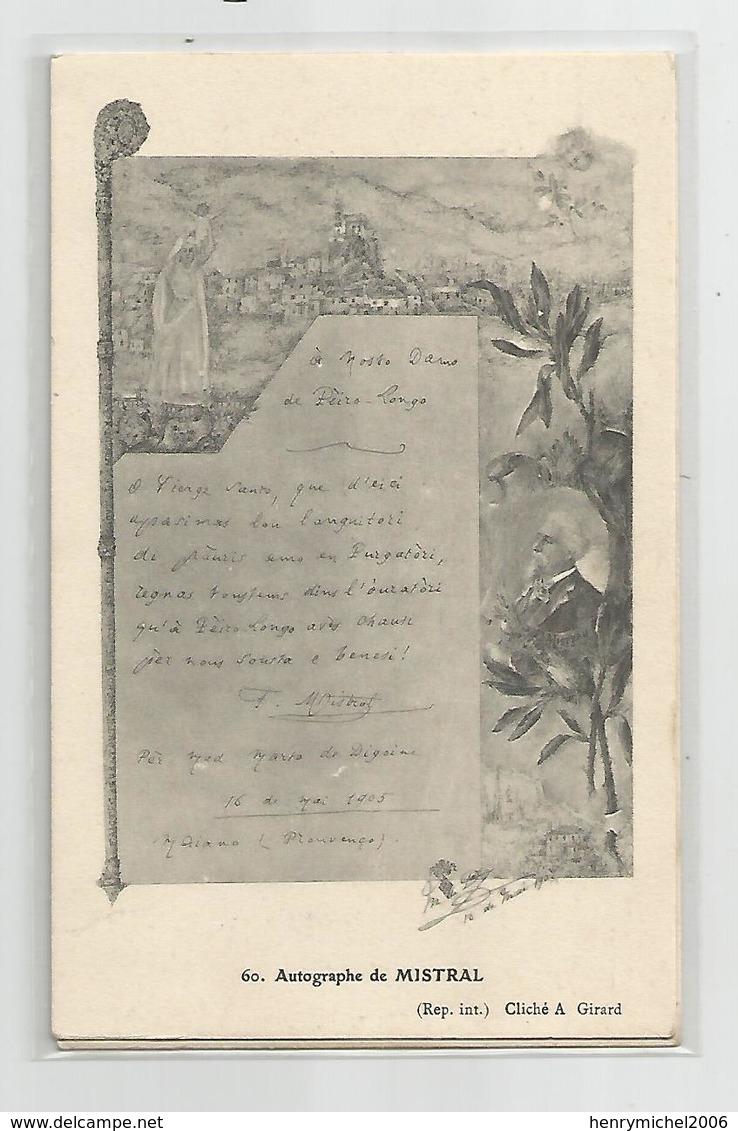 à Nosto Damo
de Pèiro-Longo
O Vierge Santo, que d'eici
apasimas lou languitòri
di pàuris amo en Purgatòri,
regnas toustems dins l'ouratòri
qu'à Pèiro-Longo avès chausi
pèr nous sousta e benesi!
F. Mistral
Pèr Mad Marto de Digoine
16 de Mai 1905
Maiano (Prouvenço).
16 de Mai
60. Autographe de MISTRAL
(Rep. int.) Cliché A Girard
delcampe.net
henrymichel2006